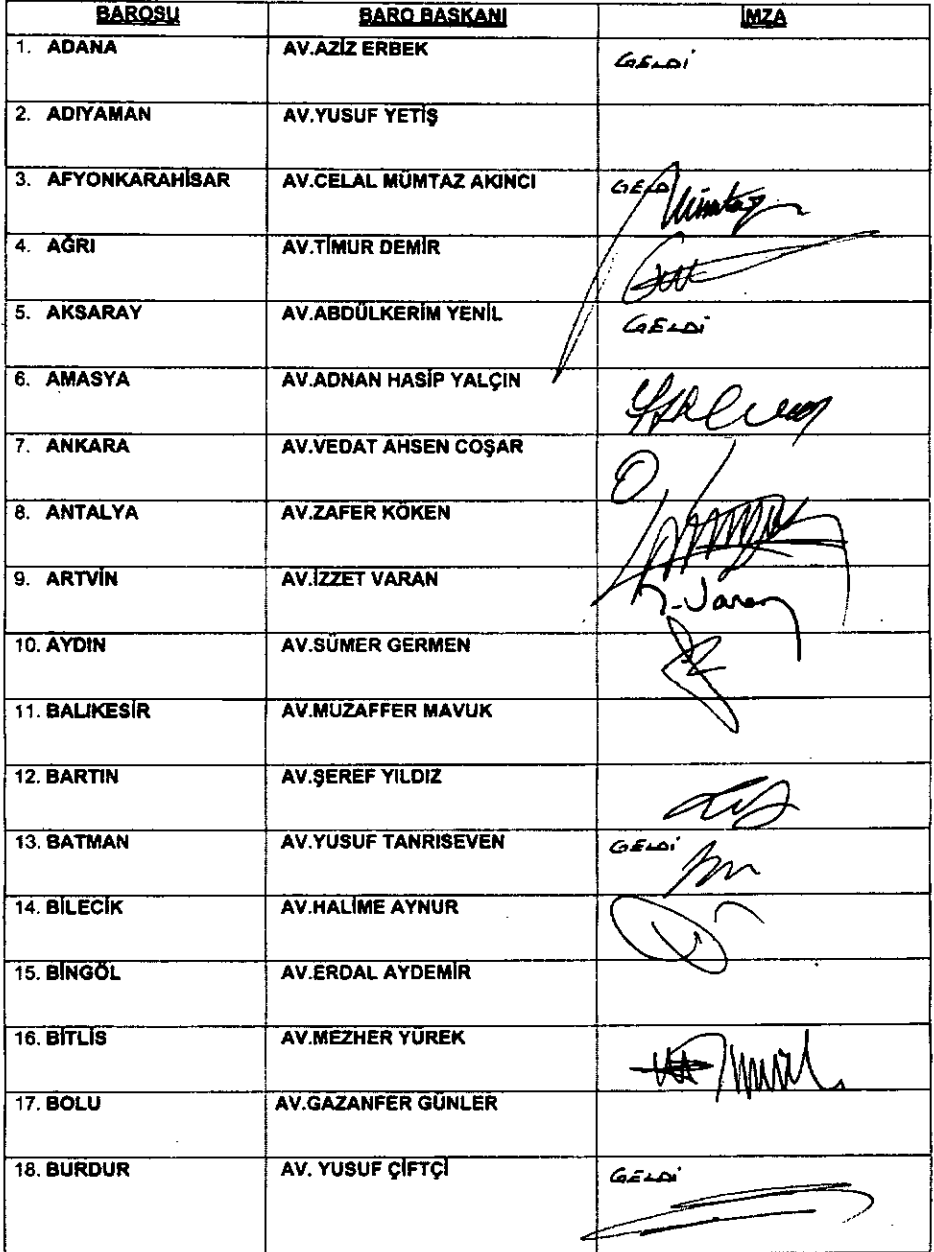 BAROSU BARO BAŞKANI İMZA
1. ADANA AV.AZİZ ERBEK GELDİ
2. ADIYAMAN AV.YUSUF YETİŞ
3. AFYONKARAHİSAR AV.CELAL MÜMTAZ AKINCI GELDİ Mümtaz
4. AĞRI AV.TİMUR DEMİR
5. AKSARAY AV.ABDÜLKERİM YENİL GELDİ
6. AMASYA AV.ADNAN HASİP YALÇIN
7. ANKARA AV.VEDAT AHSEN COŞAR
8. ANTALYA AV.ZAFER KÖKEN
9. ARTVİN AV.İZZET VARAN Varan
10. AYDIN AV.SÜMER GERMEN
11. BALIKESİR AV.MUZAFFER MAVUK
12. BARTIN AV.ŞEREF YILDIZ
13. BATMAN AV.YUSUF TANRISEVEN GELDİ
14. BİLECİK AV.HALİME AYNUR
15. BİNGÖL AV.ERDAL AYDEMİR
16. BİTLİS AV.MEZHER YÜREK
17. BOLU AV.GAZANFER GÜNLER
18. BURDUR AV. YUSUF ÇİFTÇİ GELDİ